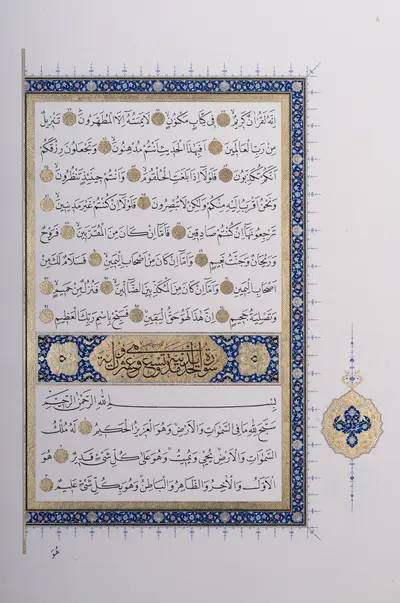 إِنَّهُ لَقُرْآنٌ كَرِيمٌ فِي كِتَابٍ مَكْنُونٍ لَا يَمَسُّهُ إِلَّا الْمُطَهَّرُونَ تَنْزِيلٌ
مِنْ رَبِّ الْعَالَمِينَ أَفَبِهَذَا الْحَدِيثِ أَنْتُمْ مُدْهِنُونَ وَتَجْعَلُونَ رِزْقَكُمْ
أَنَّكُمْ تُكَذِّبُونَ فَلَوْلَا إِذَا بَلَغَتِ الْحُلْقُومَ وَأَنْتُمْ حِينَئِذٍ تَنْظُرُونَ
وَنَحْنُ أَقْرَبُ إِلَيْهِ مِنْكُمْ وَلَكِنْ لَا تُبْصِرُونَ فَلَوْلَا إِنْ كُنْتُمْ غَيْرَ مَدِينِينَ
تَرْجِعُونَهَا إِنْ كُنْتُمْ صَادِقِينَ فَأَمَّا إِنْ كَانَ مِنَ الْمُقَرَّبِينَ فَرَوْحٌ
وَرَيْحَانٌ وَجَنَّتُ نَعِيمٍ وَأَمَّا إِنْ كَانَ مِنْ أَصْحَابِ الْيَمِينِ فَسَلَامٌ لَكَ مِنْ
أَصْحَابِ الْيَمِينِ وَأَمَّا إِنْ كَانَ مِنَ الْمُكَذِّبِينَ الضَّالِّينَ فَنُزُلٌ مِنْ حَمِيمٍ
وَتَصْلِيَةُ جَحِيمٍ إِنَّ هَذَا لَهُوَ حَقُّ الْيَقِينِ فَسَبِّحْ بِاسْمِ رَبِّكَ الْعَظِيمِ
سورة الحديد مدنية وهي تسع وعشرون آية
بِسْمِ اللَّهِ الرَّحْمَنِ الرَّحِيمِ
سَبَّحَ لِلَّهِ مَا فِي السَّمَوَاتِ وَالْأَرْضِ وَهُوَ الْعَزِيزُ الْحَكِيمُ لَهُ مُلْكُ
السَّمَوَاتِ وَالْأَرْضِ يُحْيِي وَيُمِيتُ وَهُوَ عَلَى كُلِّ شَيْءٍ قَدِيرٌ هُوَ
الْأَوَّلُ وَالْآخِرُ وَالظَّاهِرُ وَالْبَاطِنُ وَهُوَ بِكُلِّ شَيْءٍ عَلِيمٌ
هُوَ